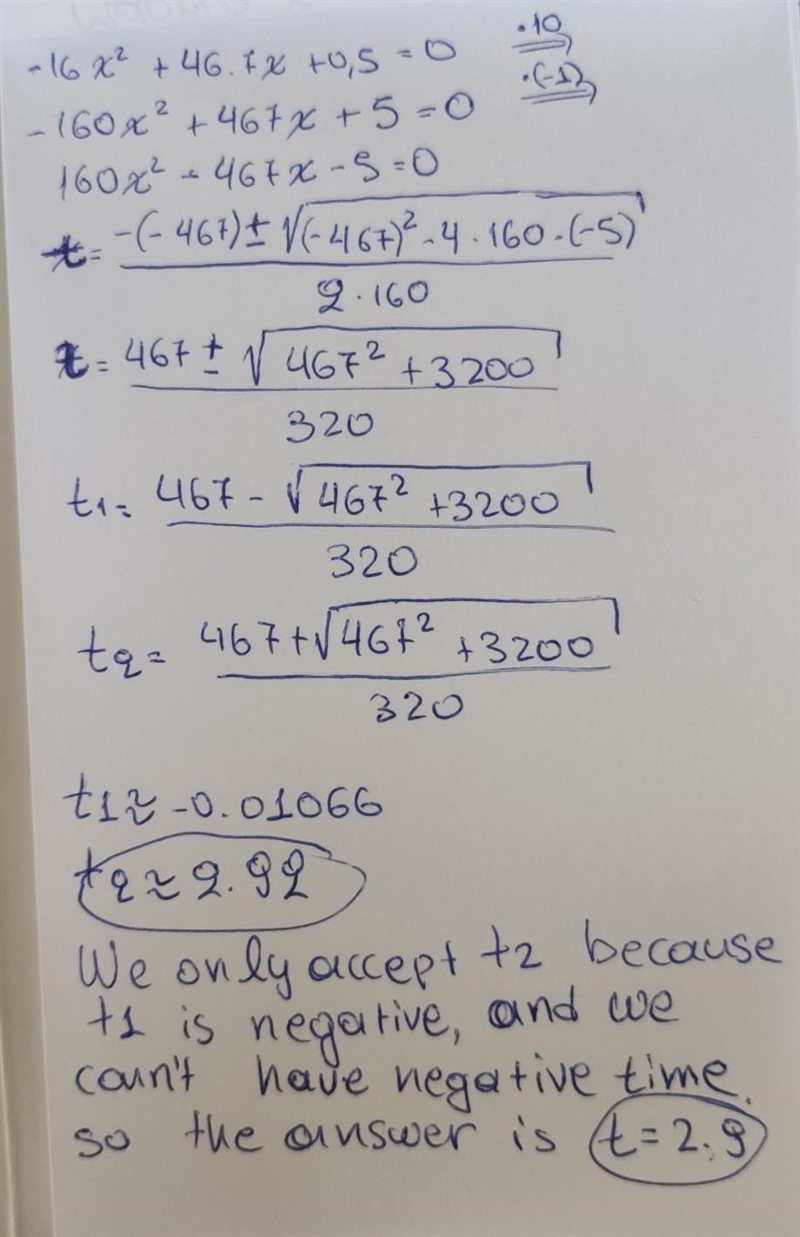 -16x² + 46.7x + 0,5 = 0 ·10
-160x² + 467x + 5 = 0 ·(-1)
160x² - 467x - 5 = 0
t = -(-467) ± √(-467)² - 4·160·(-5)
2·160
t = 467 ± √467² + 3200
320
t1 = 467 - √467² + 3200
320
t2 = 467 + √467² + 3200
320
t1 ≈ -0.01066
t2 ≈ 2.92
We only accept t2 because
t1 is negative, and we
can't have negative time.
so the answer is t = 2.9